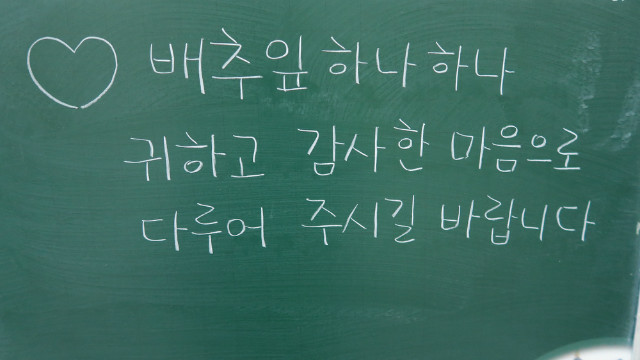 배추잎 하나하나
귀하고 감사한 마음으로
다루어 주시길 바랍니다